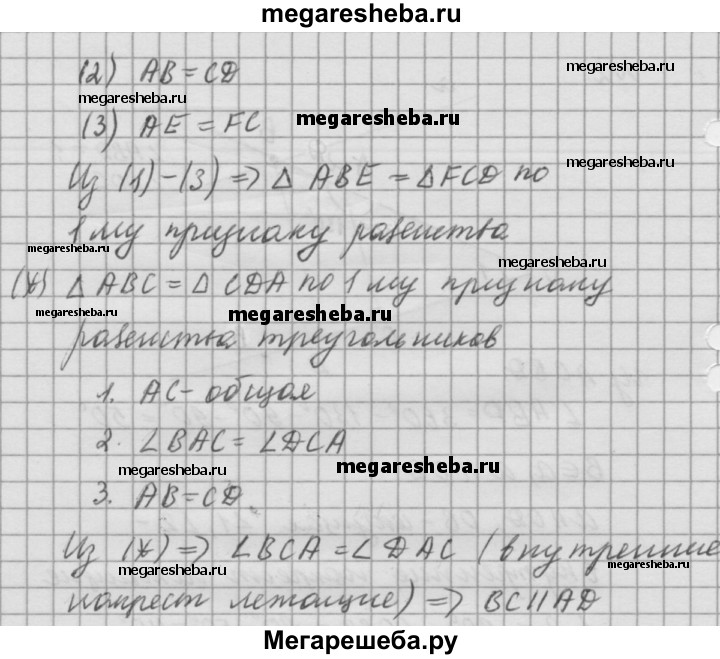 megaresheba.ru
(2) AB = CD
megaresheba.ru
megaresheba.ru
megaresheba.ru
(3) AE = FC
megaresheba.ru
Из (1)-(3) => Δ ABE = Δ FCD по
1 му признаку равенства
megaresheba.ru
megaresheba.ru
(*) Δ ABC = Δ CDA по 1 му признаку
megaresheba.ru
megaresheba.ru
равенства треугольников
1. AC - общая
2. ∠BAC = ∠DCA
megaresheba.ru
megaresheba.ru
3. AB = CD
Из (*) => ∠BCA = ∠DAC (внутренние
megaresheba.ru
megaresheba.ru
накрест лежащие) => BC || AD
Мегарешеба.ру